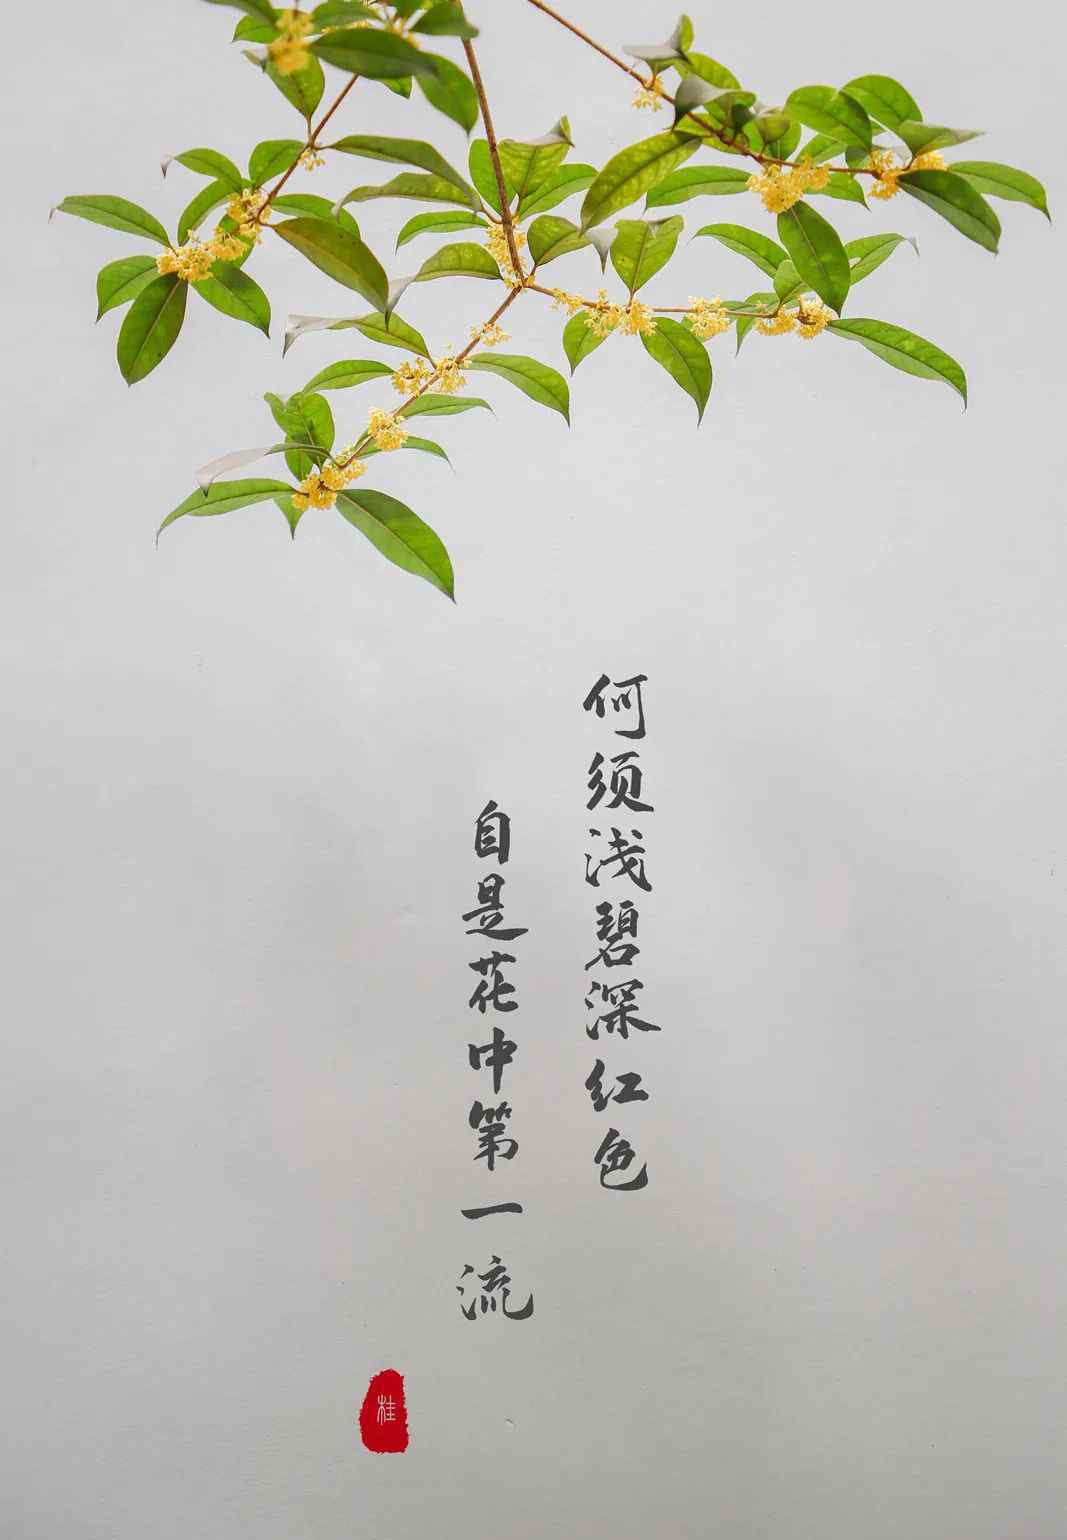 何须浅碧深红色
自是花中第一流
桂